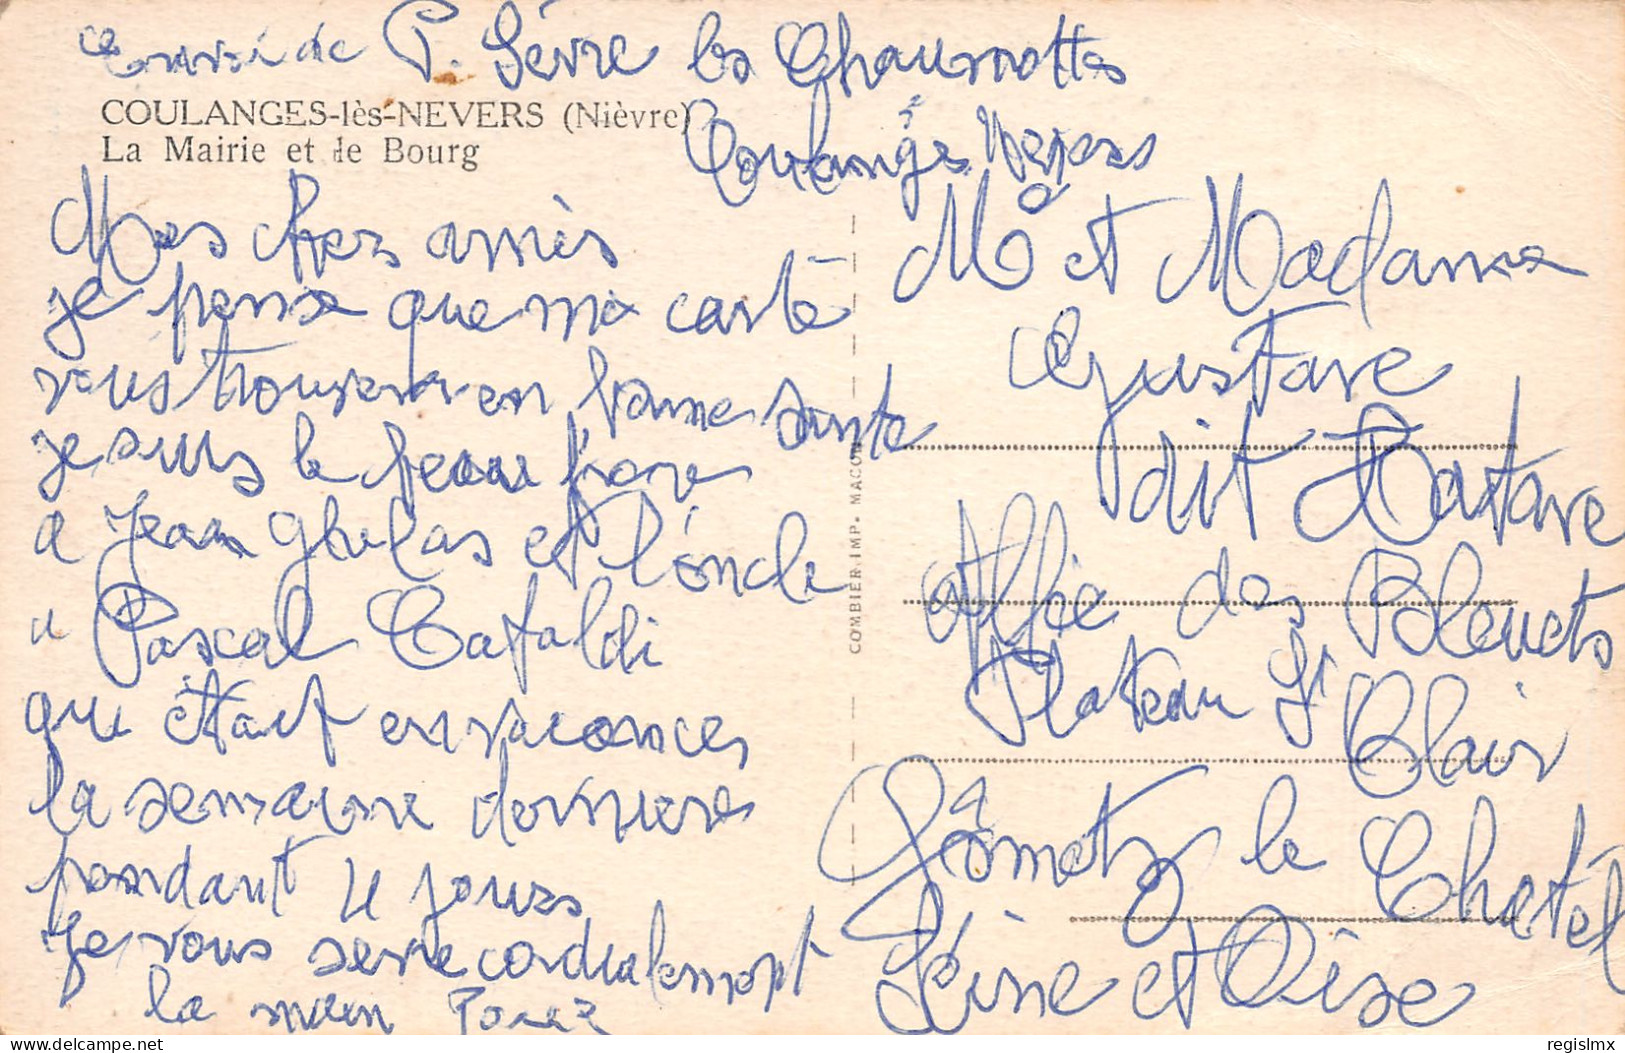 Envoi de P. Sèvre les Chaumottes
COULANGES-lès-NEVERS (Nièvre)
La Mairie et le Bourg
Coulanges Nevers
Mes chers amis
je pense que ma carte
vous trouvera en bonne sante
je suis le beau frere
a Jean Ghelas et l'oncle
a Pascal Cataldi
qui etait en vacances
la semaine derniere
pendant 4 jours
Je vous serre cordialement
la main
COMBIER IMP. MACON
Mr et Madame
Gustave
dit Tatave
Allée des Bleuets
Plateau St
Clair
Gometz le Chatel
Seine et Oise
regislmx
delcampe.net